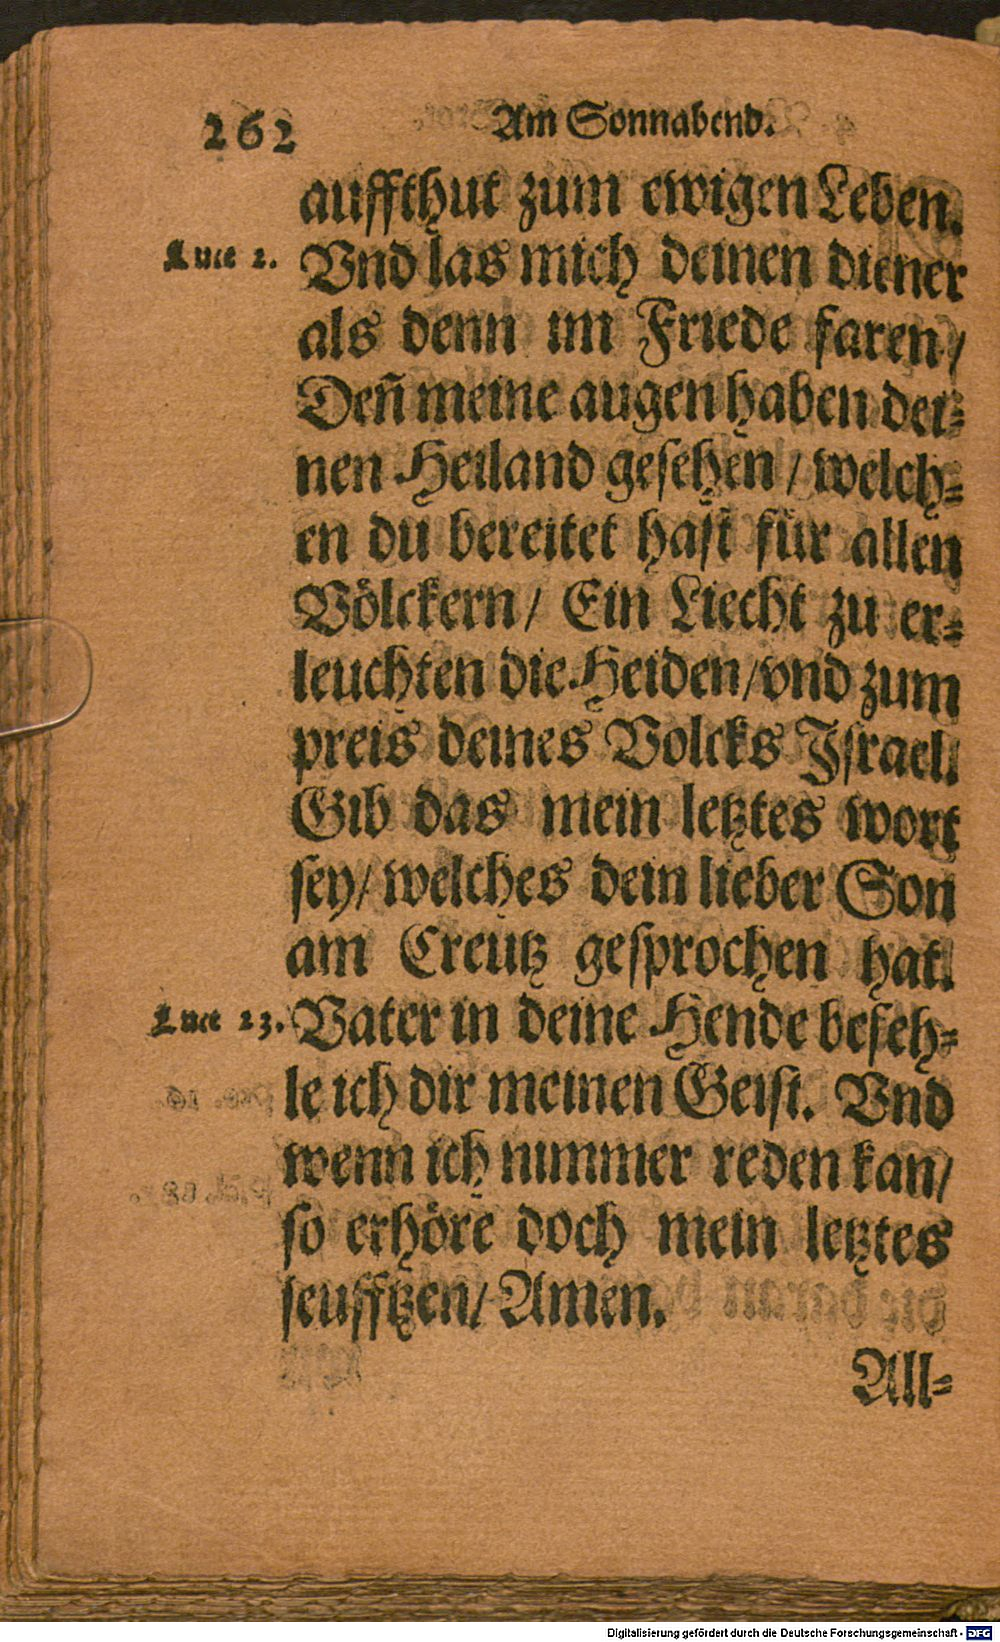 262
Am Sonnabend.
auffthut zum ewigen Leben.
Luce 2.
Vnd las mich deinen diener
als denn im Friede faren/
Deñ meine augen haben dei⸗
nen Heiland gesehen / welch⸗
en du bereitet hast für allen
Völckern/ Ein Liecht zu er⸗
leuchten die Heiden/vnd zum
preis deines Volcks Jsrael.
Gib das mein letztes wort
sey/ welches dein lieber Son
am Creutz gesprochen hat.
Luce 23.
Vater in deine Hende befeh⸗
le ich dir meinen Geist. Vnd
wenn ich nimmer reden kan/
so erhöre doch mein letztes
seufftzen/ Amen.
All⸗
Digitalisierung gefördert durch die Deutsche Forschungsgemeinschaft - DFG